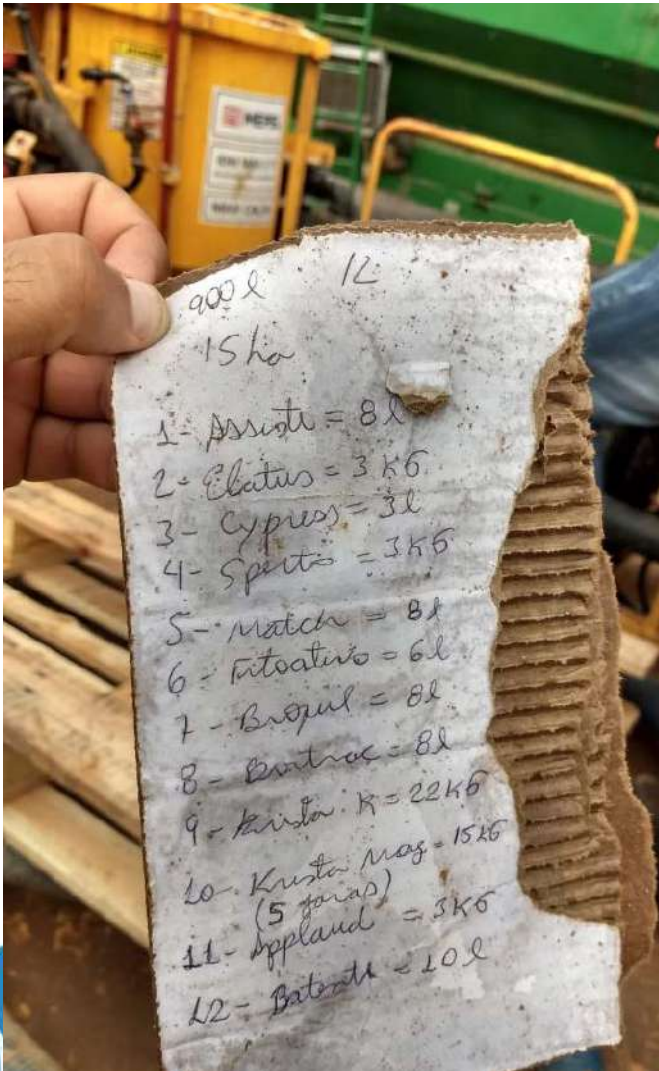 900 l 12
15 ha
1- Assist = 8 l
2- Elatus = 3 KG
3- Cypress = 3 l
4- Sperto = 3 KG
5- Match = 8 l
6- Fitoativo = 6 l
7- = 8 l
8- Bortrac = 8 l
9- Krista K = 22 KG
10- Krista Mag = 15 KG
(5 )
11- Applaud = 3 KG
12- = 10 l